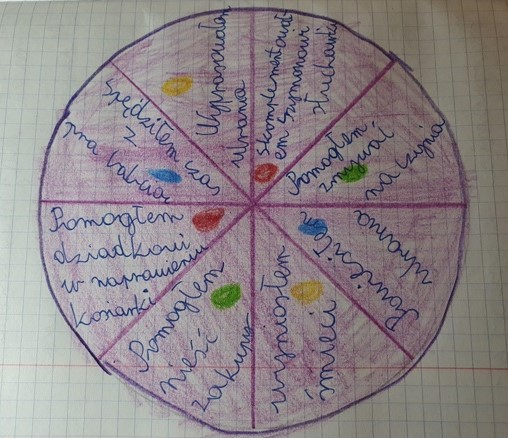 Wyprasowałem
ubrania
skomplementował-
em Szymonowi
słuchawki
Pomogłem
zmywać
naczynia
Powiesiłem
ubrania
wyniosłem
śmieci
Pomogłem
nieść
zakupy
Pomogłem
dziadkowi
w naprawieniu
kosiarki
Spędziłem czas
z
pra babcią